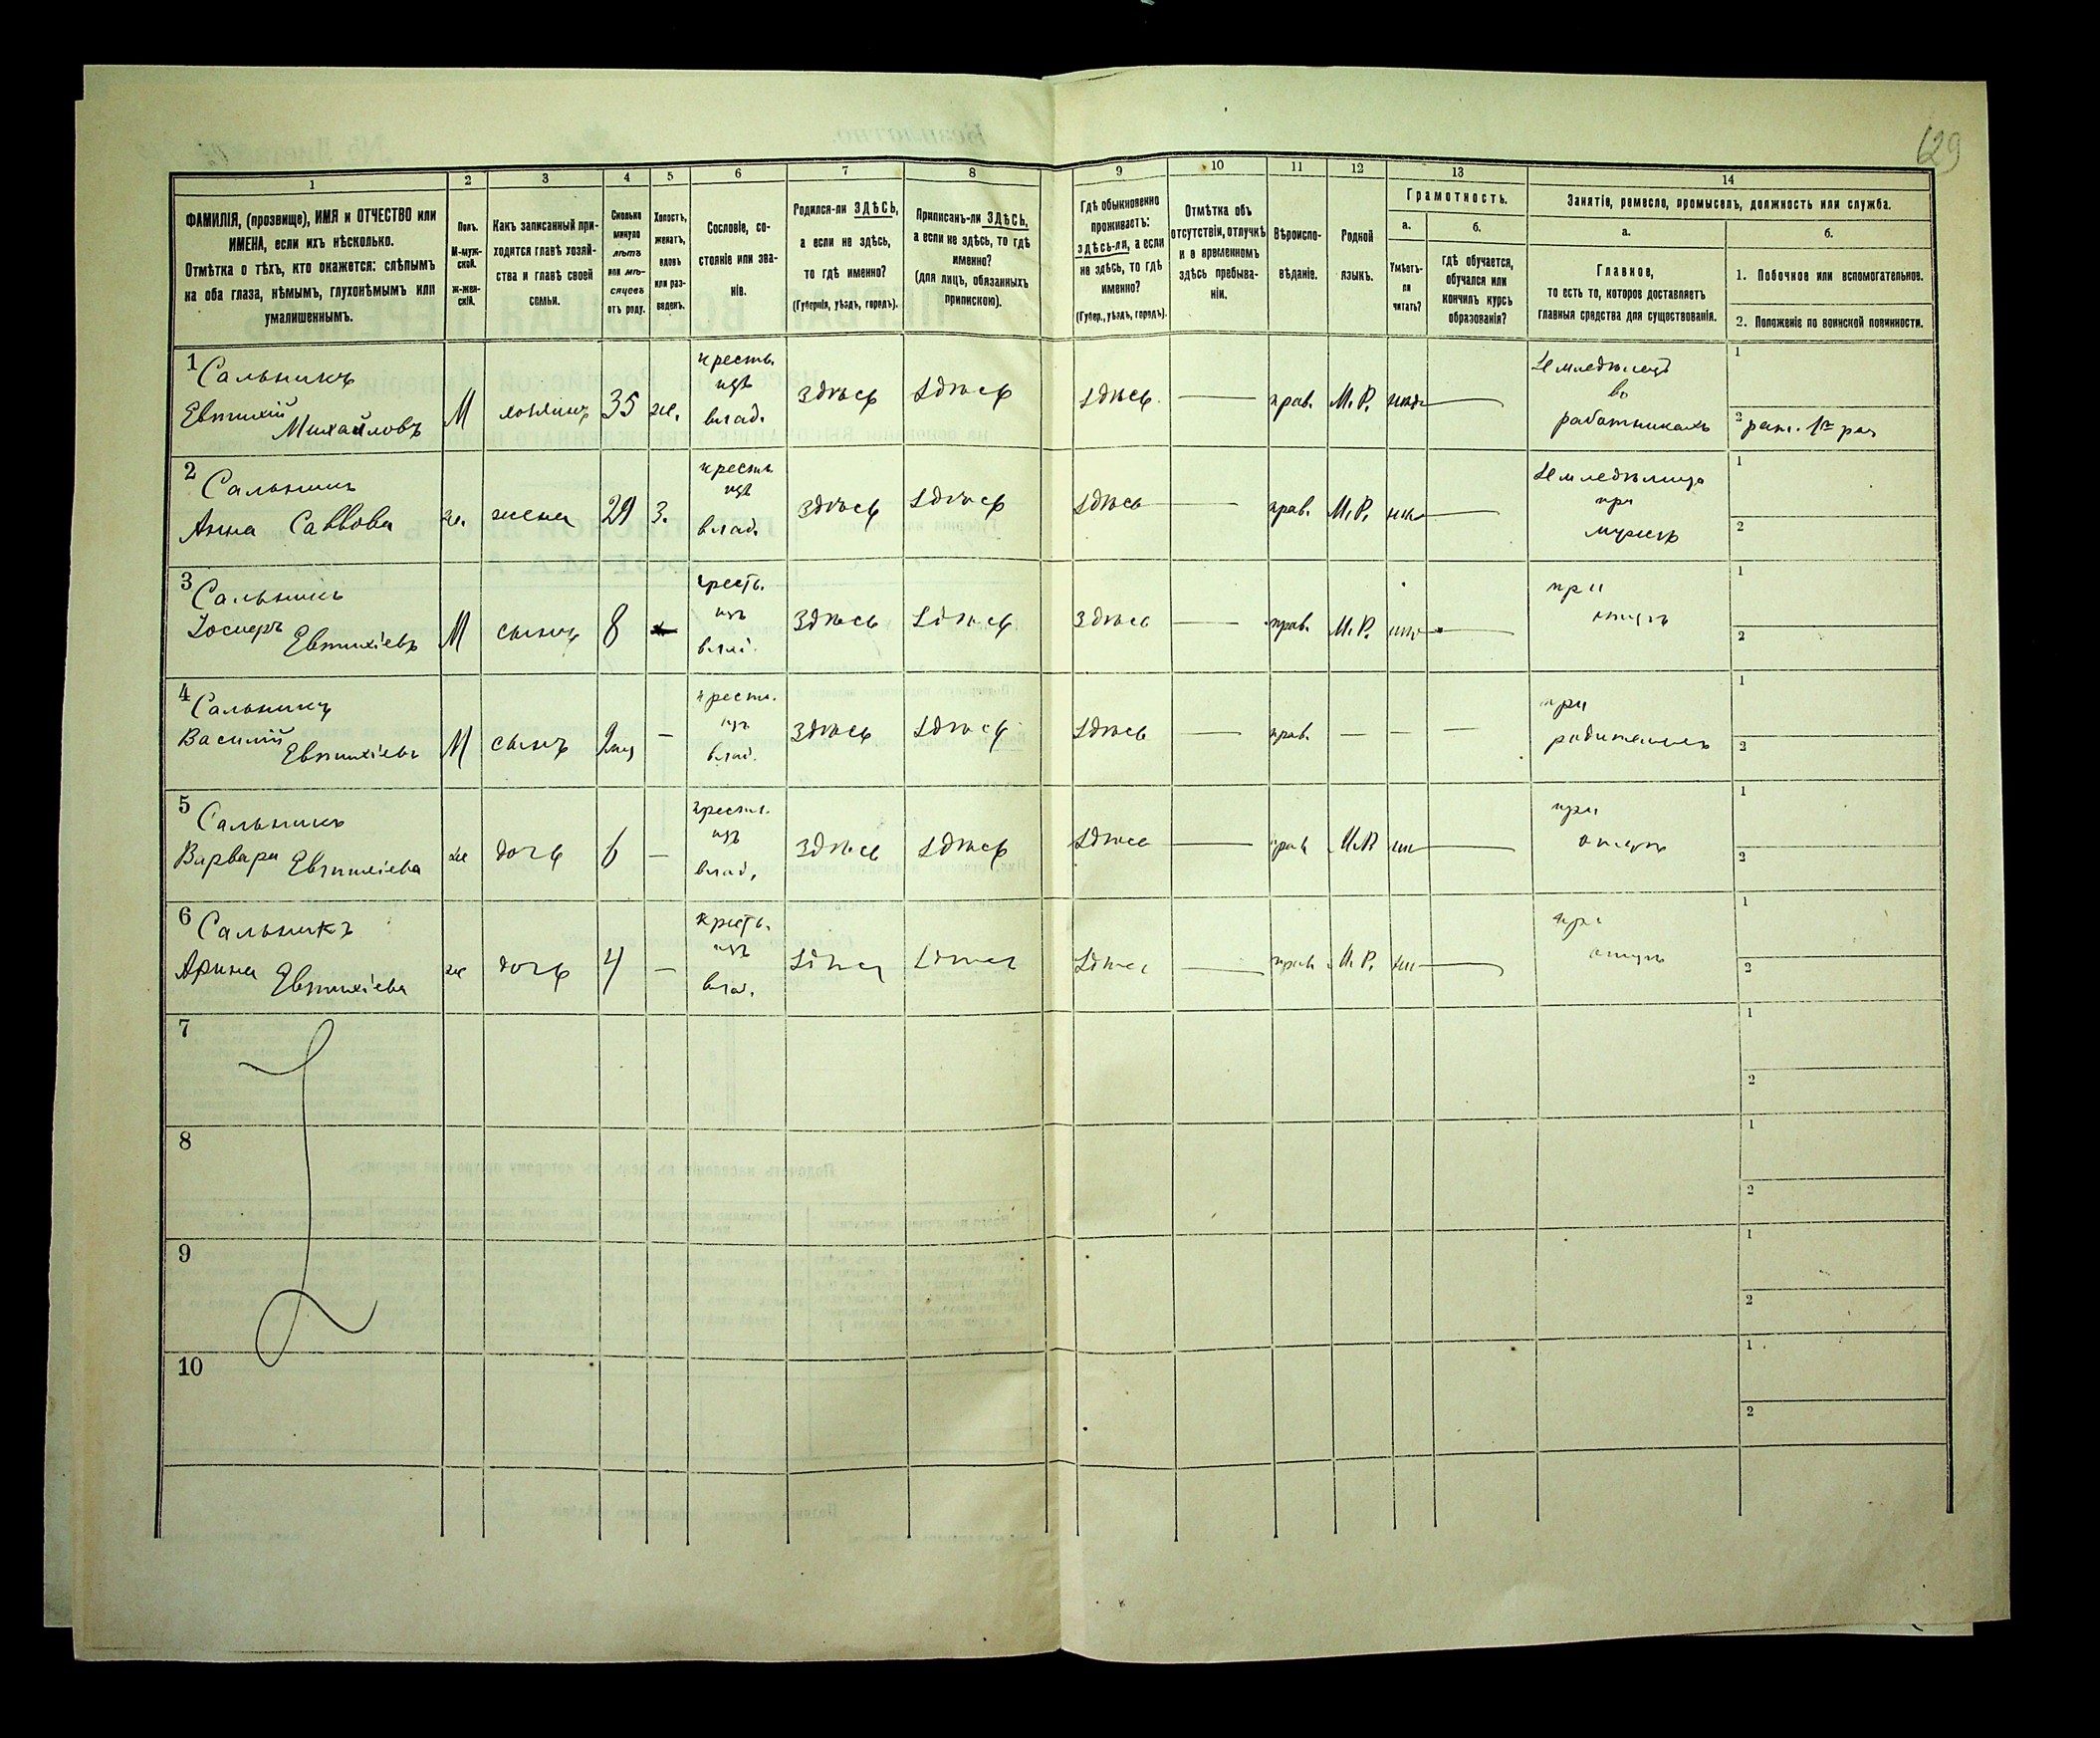 129
1 2 3 4 5 6 7 8 9 10 11 12 13 14
ФАМИЛІЯ, (прозвище), ИМЯ и ОТЧЕСТВО или
ИМЕНА, если ихъ нѣсколько.
Отмѣтка о тѣхъ, кто окажется: слѣпымъ
на оба глаза, нѣмымъ, глухонѣмымъ или
умалишеннымъ.
Полъ.
М-муж-
ской.
ж-жен-
скій.
Какъ записанный при-
ходится главѣ хозяй-
ства и главѣ своей
семьи.
Сколько
минуло
лѣтъ
или мѣ-
сяцевъ
отъ роду.
Холостъ,
женатъ,
вдовъ
или раз-
веденъ.
Сословіе, со-
стояніе или зва-
ніе.
Родился-ли ЗДѢСЬ,
а если не здѣсь,
то гдѣ именно?
(Губернія, уѣздъ, городъ).
Приписанъ-ли ЗДѢСЬ,
а если не здѣсь, то гдѣ
именно?
(для лицъ, обязанныхъ
припискою).
Гдѣ обыкновенно
проживаетъ:
здѣсь-ли, а если
не здѣсь, то гдѣ
именно?
(Губер., уѣздъ, городъ).
Отмѣтка объ
отсутствіи, отлучкѣ
и о временномъ
здѣсь пребыва-
ніи.
Вѣроиспо-
вѣданіе.
Родной
языкъ.
Грамотность.
а.
Умѣетъ-
ли
читать?
б.
гдѣ обучается,
обучался или
кончилъ курсъ
образованія?
Занятіе, ремесло, промыселъ, должность или служба.
а.
Главное,
то есть то, которое доставляетъ
главныя средства для существованія.
б.
1. Побочное или вспомогательное.
2. Положеніе по воинской повинности.
1 Сальникъ
Евтихій
Михайловъ
М
35
же.
кресть.
изъ
влад.
здѣсь
здѣсь
здѣсь
прав.
М. Р.
Земледѣлецъ
во
работникахъ
1
2
2 Сальникъ
Анна Саввова
же.
жена
29
З.
крестъ
изъ
влад.
здѣсь
здѣсь
здѣсь
прав.
М. Р.
Земледѣлица
при
мужѣ
1
2
3 Сальникъ
Іосифъ
Евтихіевъ
М
сынъ
8
кресть.
изъ
влад.
здѣсь
здѣсь
здѣсь
прав.
М. Р.
при
отцѣ
1
2
4 Сальникъ
Василій
Евтихіевъ
М
сынъ
—
крест.
изъ
влад.
здѣсь
здѣсь
здѣсь
прав.
— — —
при
родителяхъ
1
2
5 Сальникъ
Варвара Евтихіева
же
дочь
6
—
крест.
изъ
влад.
здѣсь
здѣсь
здѣсь
прав
М. Р.
при
отцѣ
1
2
6 Сальникъ
Арина Евтихіева
же
дочь
4
—
кресть.
изъ
влад.
здѣсь
здѣсь
здѣсь
прав
М. Р.
при
отцѣ
1
2
7
1
2
8
1
2
9
1
2
10
1
2